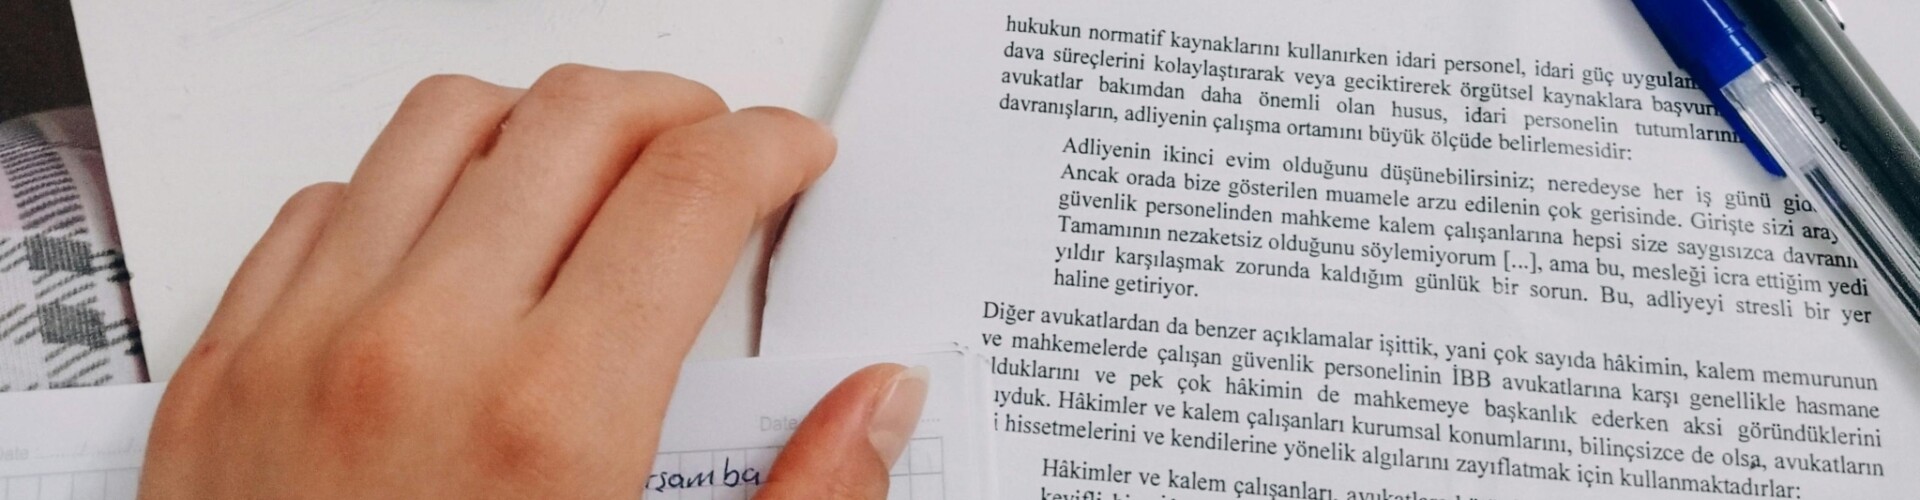 hukukun normatif kaynaklarını kullanırken idari personel, idari güç
dava süreçlerini kolaylaştırarak veya geciktirerek örgütsel kaynaklara
avukatlar bakımdan daha önemli olan husus, idari personelin
davranışların, adliyenin çalışma ortamını büyük ölçüde belirlemesidir:
Adliyenin ikinci evim olduğunu düşünebilirsiniz; neredeyse her iş günü
Ancak orada bize gösterilen muamele arzu edilenin çok gerisinde. Girişte sizi
güvenlik personelinden mahkeme kalem çalışanlarına hepsi size saygısızca
Tamamının nezaketsiz olduğunu söylemiyorum [...], ama bu, mesleği icra ettiğim yedi
yıldır karşılaşmak zorunda kaldığım günlük bir sorun. Bu, adliyeyi stresli bir yer
haline getiriyor.
Diğer avukatlardan da benzer açıklamalar işittik, yani çok sayıda hâkimin, kalem memurunun
ve mahkemelerde çalışan güvenlik personelinin İBB avukatlarına karşı genellikle hasmane
lduklarını ve pek çok hâkimin de mahkemeye başkanlık ederken aksi göründüklerini
ıyduk. Hâkimler ve kalem çalışanları kurumsal konumlarını, bilinçsizce de olsa, avukatların
i hissetmelerini ve kendilerine yönelik algılarını zayıflatmak için kullanmaktadırlar:
Hâkimler ve kalem çalışanları,
Date
rşamba